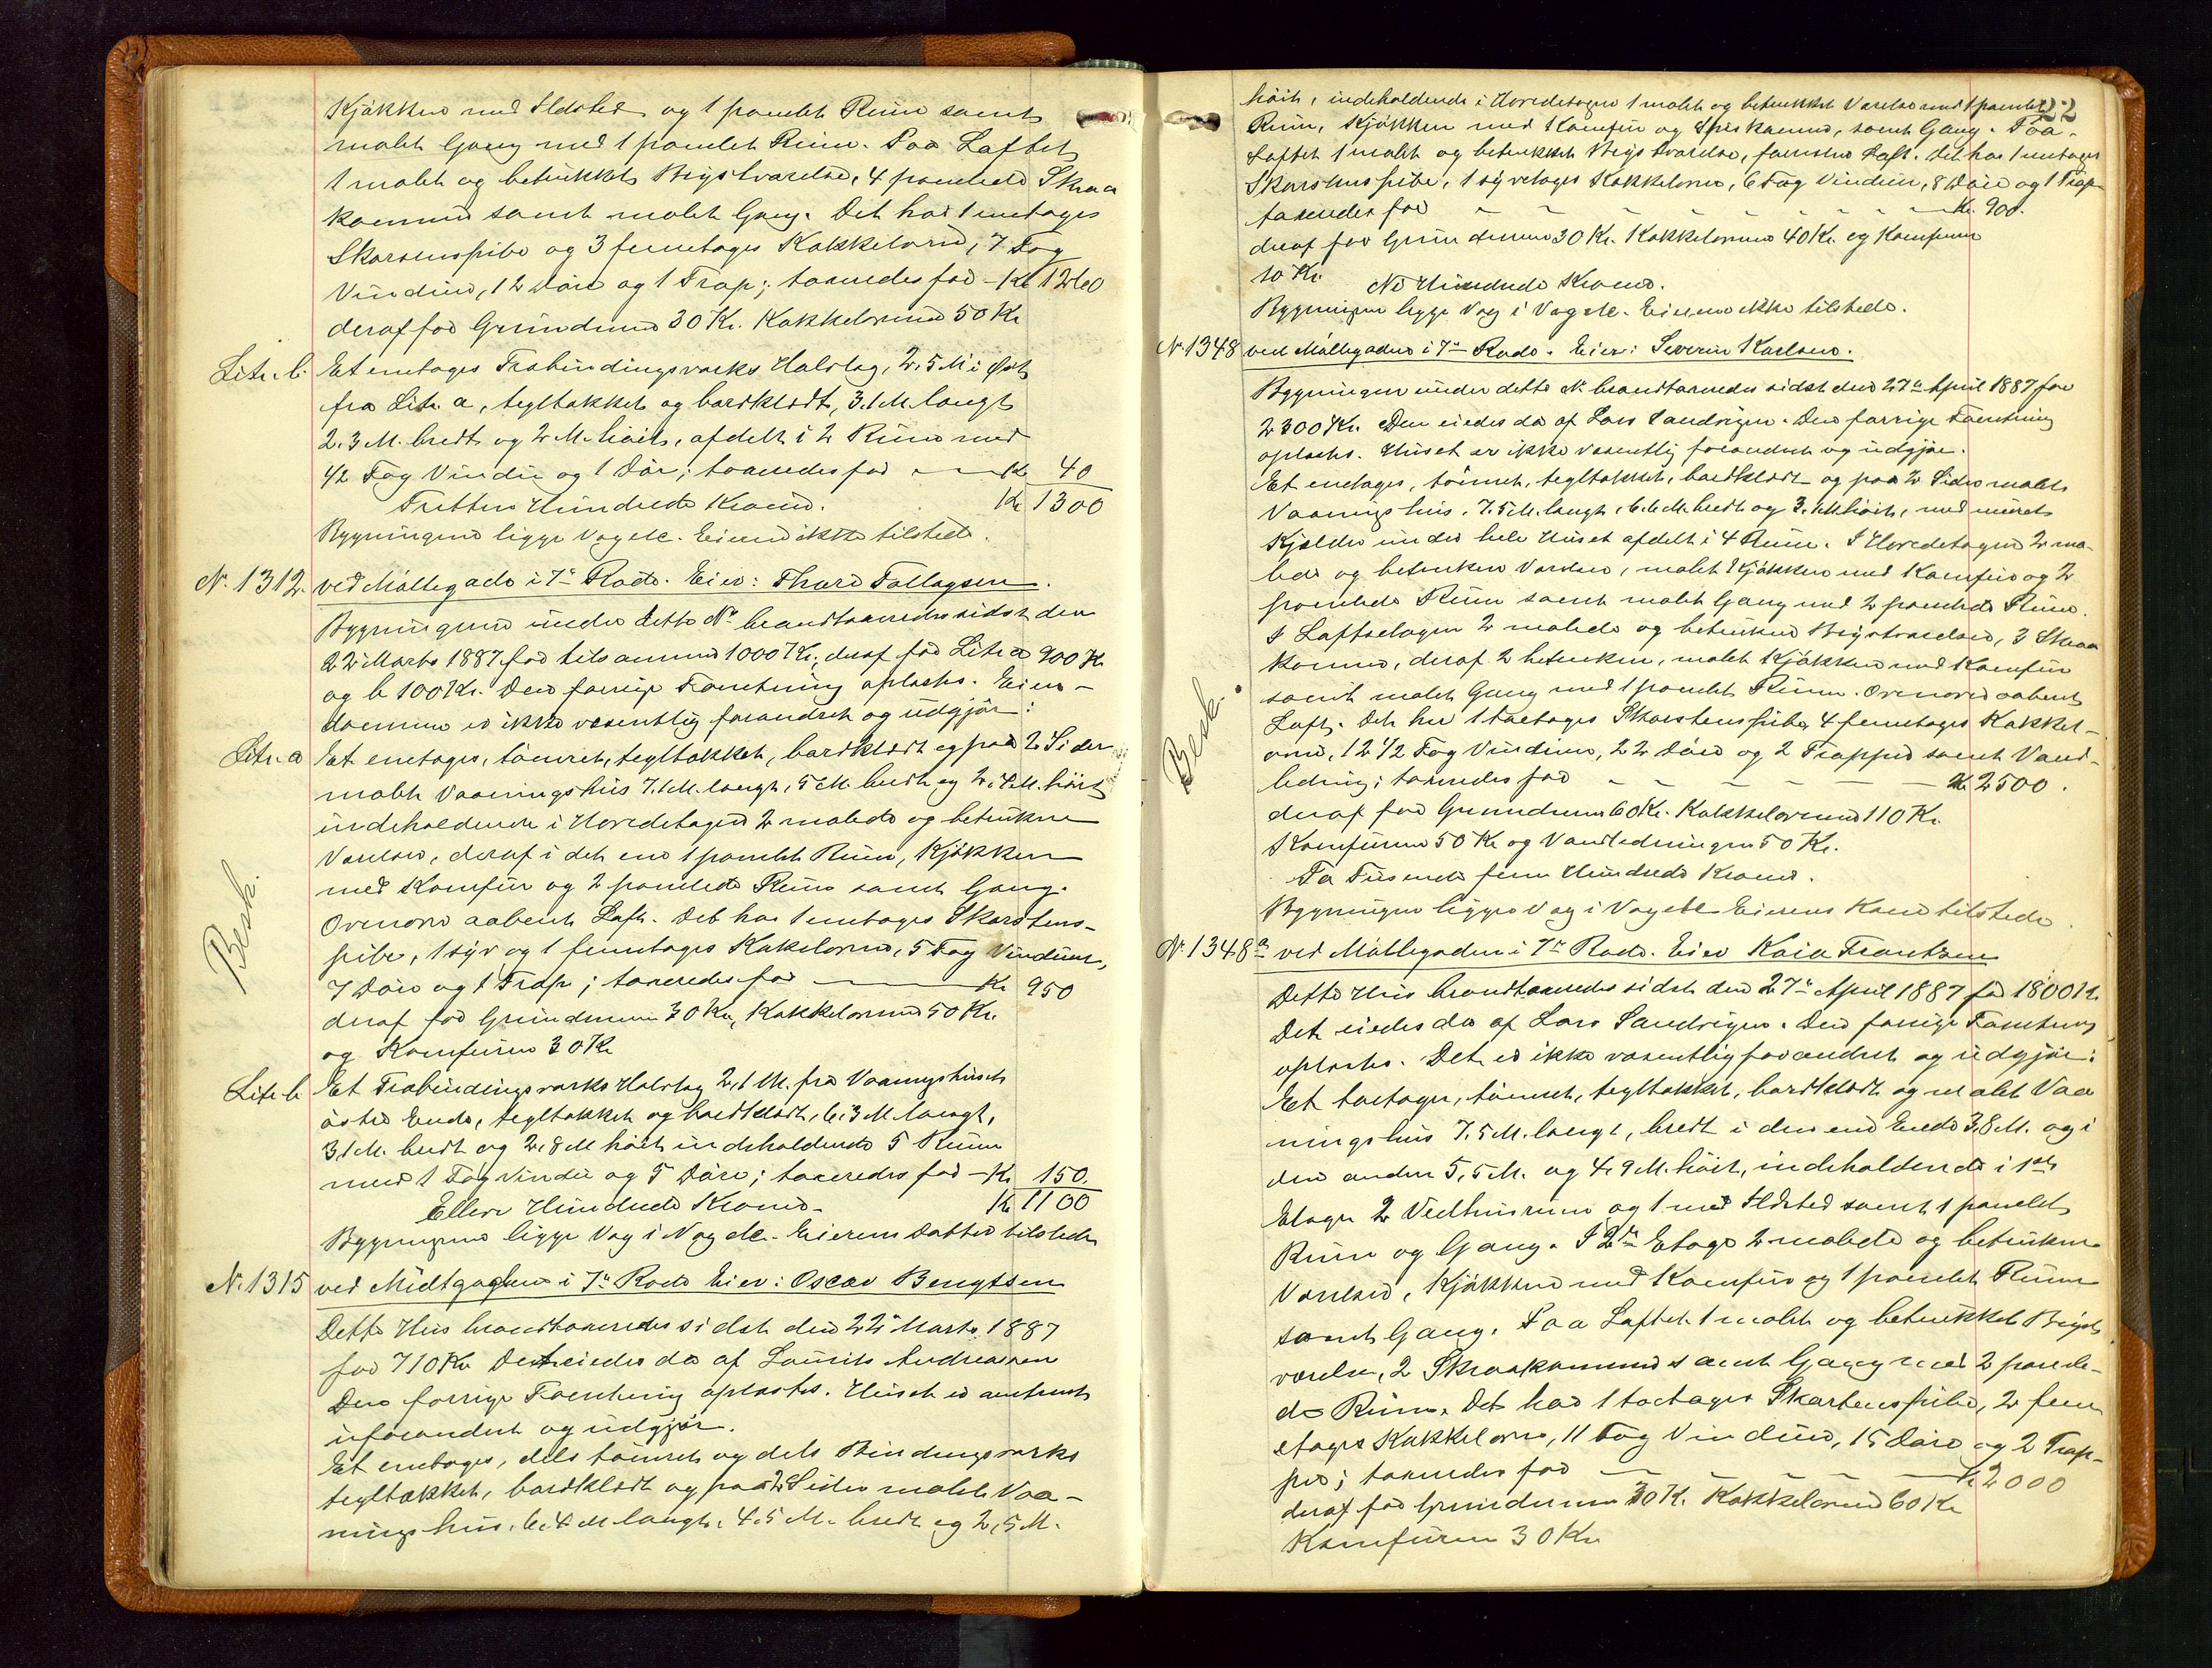 Kjøkken med Ildsted og 1 panelet Rum samt
malet Gang med 1 panelet Rum. Paa Loftet
1 malet og betrukket Kvistværelse, 4 panelede Skraa
kammer samt malet Gang. Det har 1 enetages
Skorstenspibe og 3 femetages Kakkelovne, 7 Fag
Vinduer, 12 Døre og 1 Trap; taxeredes for - Kr 1260
deraf for Grundmuren 30 Kr. Kakkelovnene 50 Kr
Litr. b. Et enetages Træbindingsværks Halvtag, 2,5 M i Øst
fra Litr. a, tegltækket og bordklædt, 3.1 M. langt
2.3 M. bredt og 2 M. høit, afdelt i 2 Rum med
1/2 Fag Vindu og 1 Dør; taxeredes for — Kr 40
Tretten Hundrede Kroner. Kr 1300
Bygningene ligge Vag etc. Eieren ikke tilstede.
N. 1312. ved Møllegade i 7de Rode. Eier: Thore Tallagsen.
Bygningerne under dette No brandtaxeredes sidst den
22de Marts 1887 for tilsammen 1000 Kr., deraf for Litr a 900 Kr.
og b 100 Kr. Den forrige Forretning oplæstes. Eien-
dommen er ikke væsentlig forandret og udgjør:
Litr. a Et enetages, tømret, tegltækket, bordklædt og paa 2 Sider
malet Vaaningshus 7.1 M. langt, 5 M. bredt og 2,4 M. høit
indeholdende i Hovedetagen 2 malede og betrukne
Værelser, deraf i det ene 1 panelet Rum, Kjøkken
med Komfur og 2 panelede Rum samt Gang.
Ovenover aabent Loft. Det har 1 enetages Skorstens-
pibe, 1 syv og 1 femetages Kakelovne, 5 Fag Vinduer,
7 Døre og 1 Trap; taxeredes for — Kr 950
deraf for Grundmuren 30 Kr, Kakkelovnene 50 Kr.
og Komfuren 30 Kr
Besk.
Litr. b Et Træbindingsværks Halvtag 2,1 M. fra Vaaningshusets
østre Ende, tegltækket og bordklædt, 6.3 M langt,
3,1 M. bredt og 2,8 M høit indeholdende 5 Rum
med 1 Fag Vindu og 5 Døre; taxeredes for - Kr. 150.
Elleve Hundrede Kroner. Kr 1100
Bygningerne ligge Vag i Vag etc. Eierens Datter tilstede
N. 1315 ved Midtgaden i 7de Rode Eier: Oscar Bengtsen
Dette Hus brandtaxeredes sidst den 22de Marts 1887
for 710 Kr Det eiedes da af Laurits Andreassen
Den forrige Forretning oplæstes. Huset er omtrent
uforandret og udgjør.
Et enetages, dels tømret og dels Bindingsværks
tegltækket, bordklædt og paa 2 Sider malet Vaa-
ningshus, 6,4 M langt, 4.5 M. bredt og 2,5 M.
22
høit, indeholdende i Hovedetagen 1 malet og betrukket Værelse med 1 panelet
Rum, Kjøkken med Komfur og Spiskammer, samt Gang. Paa
Loftet 1 malet og betrukket Kvistværelse, forøvrigt Loft. Det har 1 enetages
Skorstenspibe, 1 syvetages Kakkelovn, 6 Fag Vinduer, 8 Døre og 1 Trap
taxeredes for Kr. 900.
deraf for Grundmuren 30 Kr. Kakkelovnene 40 Kr. og Komfuren
10 Kr. Ni Hundrede Kroner.
Bygningen ligge Vag i Vag etc. Eieren ikke tilstede.
N. 1348 ved Møllegaden i 7de Rode. Eier: Severin Karlsen.
Bygningen under dette N. brandtaxeredes sidst den 27de April 1887 for
2300 Kr. Den eiedes da af Lars Sandvigen. Den forrige Forretning
oplæstes. Huset er ikke væsentlig forandret og udgjør.
Et enetages, tømret, tegltækket, bordklædt og paa 2 Sider malet
Vaaningshus, 7.5 M. langt, 6.6 M. bredt og 3.1 M høit, med muret
Kjælder under hele Huset afdelt i 4 Rum. I Hovedetagen 2 ma-
lede og betrukne Værelser, malet Kjøkken med Komfur og 2
panelede Rum samt malet Gang med 2 panelede Rum.
I Loftsetagen 2 malede og betrukne Kvistværelser, 3 Skraa
kammer, deraf 2 betrukne, malet Kjøkken med Komfur
samt malet Gang med 1 panelet Rum. Ovenover aabent
Loft. Det har 1 toetages Skorstenspibe, 4 femetages Kakkel-
ovne, 12 1/2 Fag Vinduer, 22 Døre og 2 Trapper samt Vand-
ledning; taxeredes for Kr 2500.
deraf for Grundmuren 60 Kr. Kakkelovnene 110 Kr.
Komfurene 50 Kr og Vandledningen 50 Kr.
To Tusende fem Hundrede Kroner.
Bygningen ligger Vag i Vag etc Eierens Kone tilstede
Besk.
N. 1348a ved Møllegaden i 7de Rode. Eier Kaia Frantzen
Dette Hus brandtaxeredes sidst den 27de April 1887 for 1800 Kr.
Det eiedes da af Lars Sandvigen. Den forrige Forretning
oplæstes. Det er ikke væsentlig forandret og udgjør:
Et toetages, tømret, tegltækket, bordklædt og malet Vaa
ningshus 7.5 M. langt, bredt i den ene Ende 3,8 M. og i
den anden 5,5 M. og 4,9 M. høit, indeholdende i 1ste
Etage 2 Vedhusrum og 1 med Ildsted samt 1 panelet
Rum og Gang. I 2den Etage 2 malede og betrukne
Værelser, Kjøkken med Komfur og 1 panelet Rum
samt Gang. Paa Loftet 1 malet og betrukket Kvist
værelse, 2 Skraakammer samt Gang med 2 panele-
de Rum. Det har 1 toetages Skorstenspibe, 2 fem
etages Kakkelovne, 11 Fag Vinduer, 15 Døre og 2 Trap-
per; taxeredes for Kr 2000
deraf for Grundmuren 30 Kr. Kakkelovnene 60 Kr
Komfuren 30 Kr.